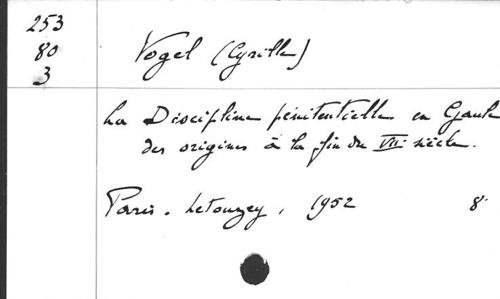 253
80
3
Vogel (Cyrille)
La Discipline pénitentielle en Gaule
des origines à la fin du VIIe siècle.
Paris. Letouzey, 1952 8°